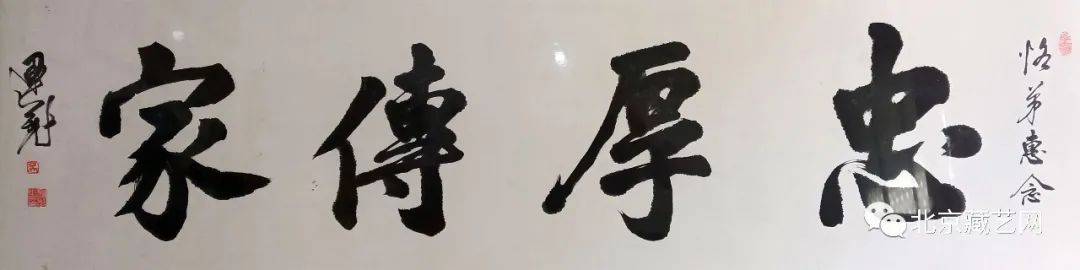 恪弟惠念
忠厚傳家
北京藏艺网